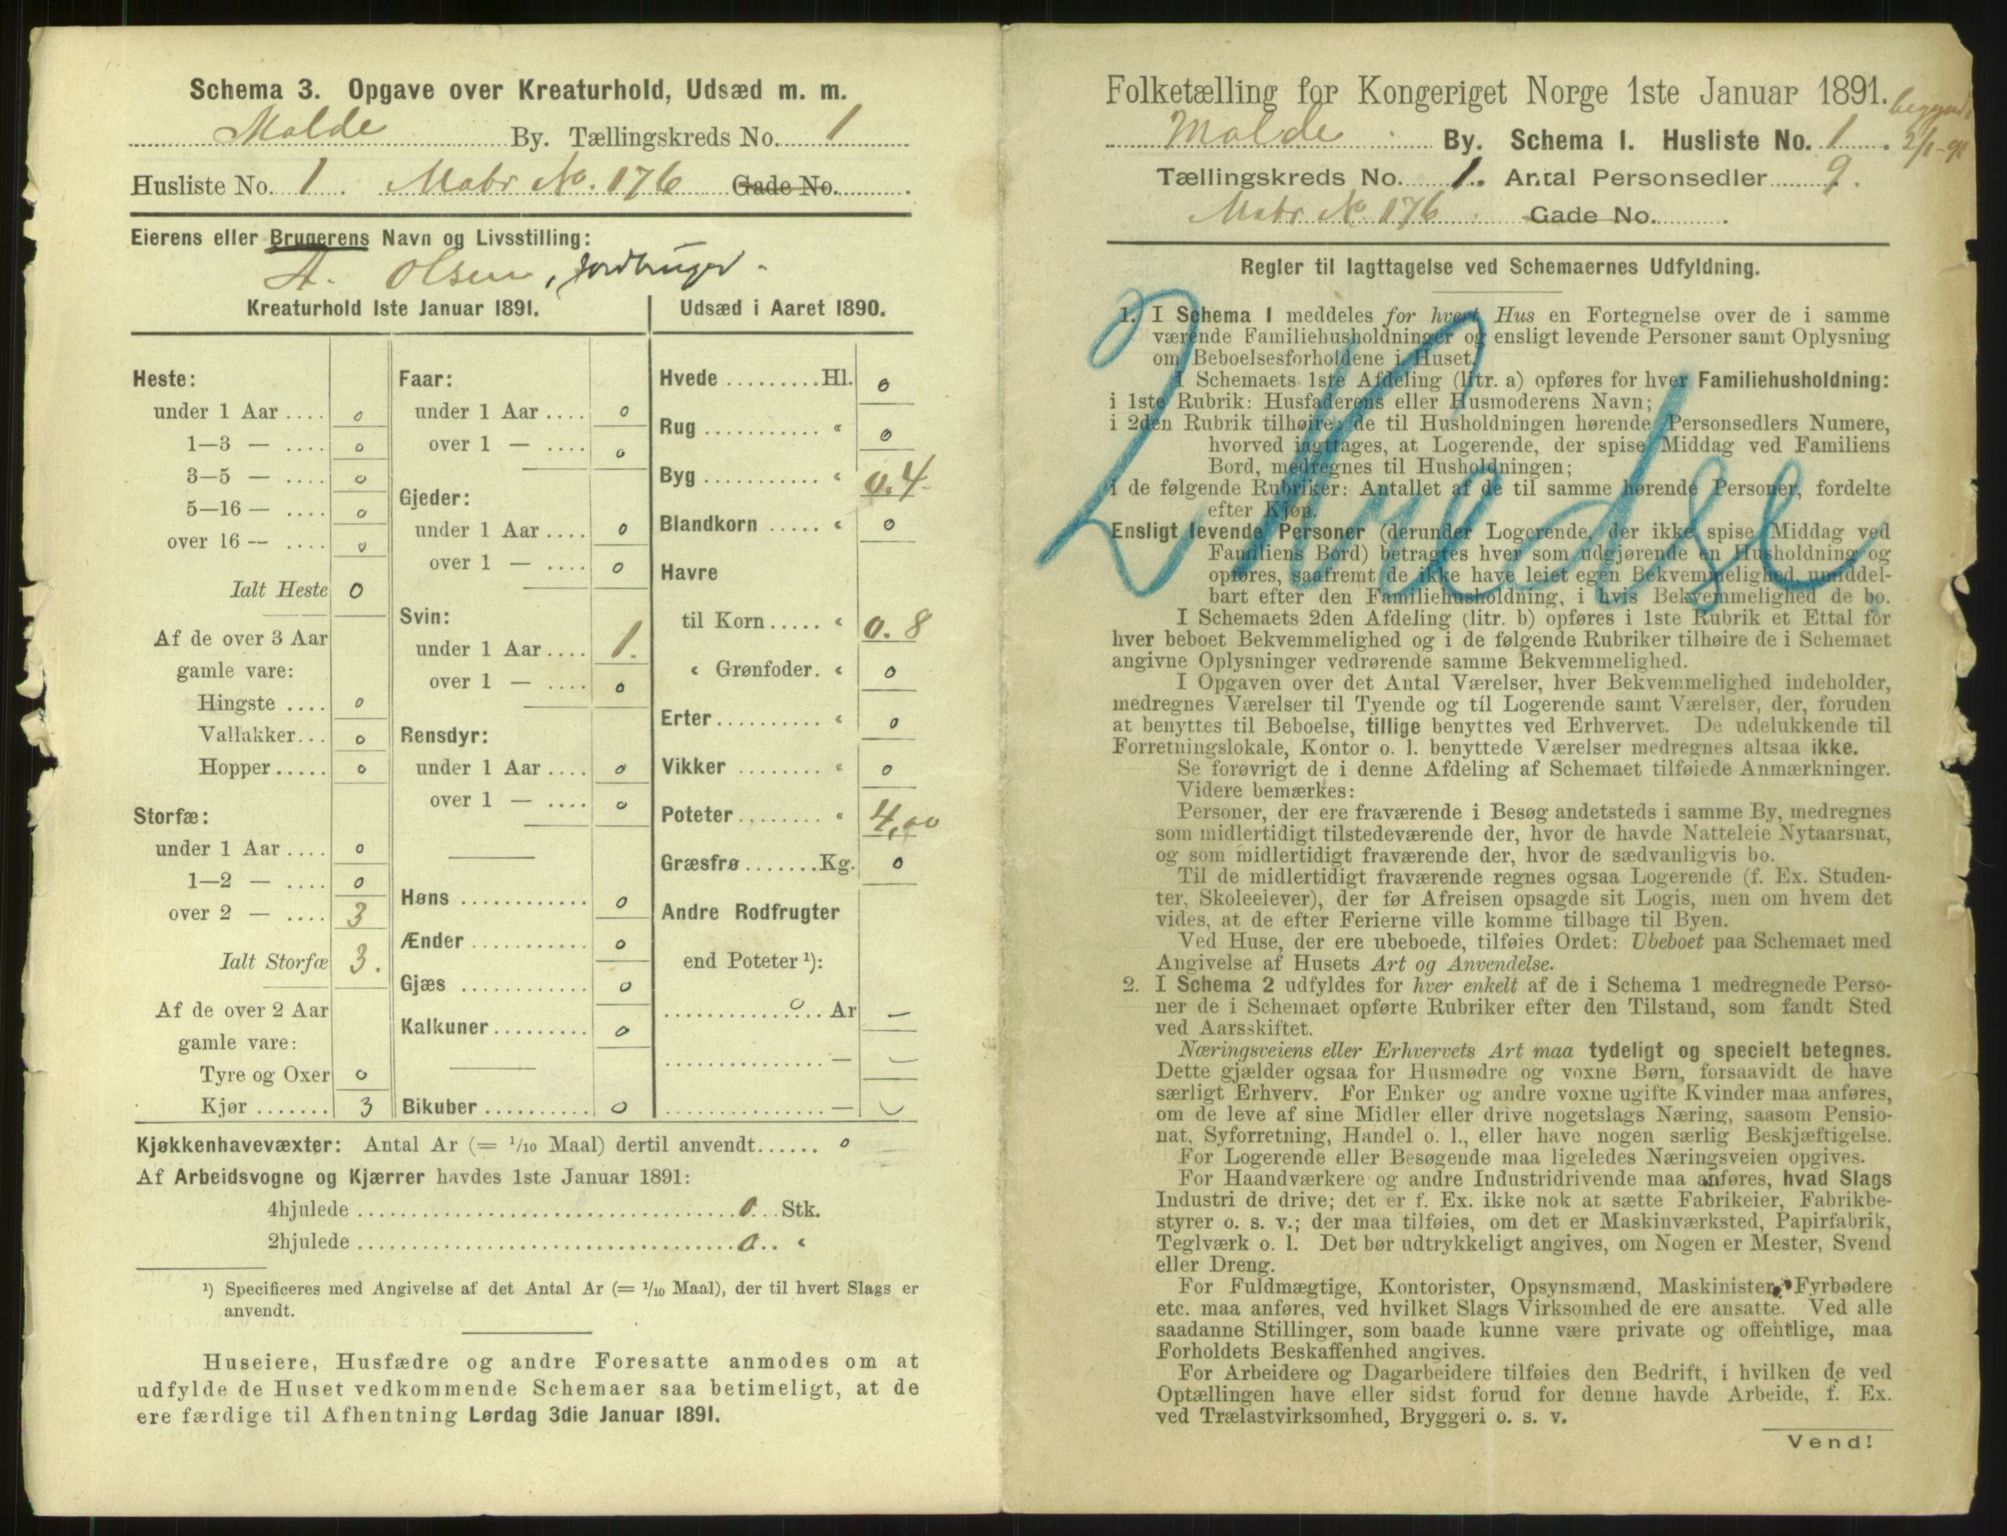 Schema 3. Opgave over Kreaturhold, Udsæd m. m.
Molde By. Tællingskreds No. 1
Husliste No. 1. Matr No. 176 Gade No.
Eierens eller Brugerens Navn og Livsstilling:
A. Olsen, jordbruger.
Kreaturhold 1ste Januar 1891.
Heste:
under 1 Aar .... 0
1—3 — .... 0
3—5 — .... 0
5—16 — .... 0
over 16 — .... 0
Ialt Heste 0
Af de over 3 Aar
gamle vare:
Hingste .... 0
Vallakker... 0
Hopper ..... 0
Storfæ:
under 1 Aar .... 0
1—2 — .... 0
over 2 — .... 3
Ialt Storfæ 3.
Af de over 2 Aar
gamle vare:
Tyre og Oxer 0
Kjør ....... 3
Faar:
under 1 Aar .... 0
over 1 — .... 0
Gjeder:
under 1 Aar .... 0
over 1 — .... 0
Svin:
under 1 Aar .... 1.
over 1 — .... 0
Rensdyr:
under 1 Aar .... 0
over 1 — .... 0
Høns ............ 0
Ænder ........... 0
Gjæs ............ 0
Kalkuner ......... 0
Bikuber .......... 0
Udsæd i Aaret 1890.
Hvede ......... Hl. 0
Rug ........... “ 0
Byg ........... “ 0.4
Blandkorn ..... “ 0
Havre
til Korn ..... “ 0.8
“ Grønfoder. “ 0
Erter .......... “ 0
Vikker ........ “ 0
Poteter ........ “ 4,00
Græsfrø ....... Kg. 0
Andre Rodfrugter
end Poteter ¹):
0 Ar —
— —
— —
Kjøkkenhavevæxter: Antal Ar (= 1/10 Maal) dertil anvendt...... 0
Af Arbeidsvogne og Kjærrer havdes 1ste Januar 1891:
4hjulede .................. 0 ... Stk.
2hjulede .................. 0 .. “
¹) Specificeres med Angivelse af det Antal Ar (= 1/10 Maal), der til hvert Slags er
anvendt.
Huseiere, Husfædre og andre Foresatte anmodes om at
udfylde de Huset vedkommende Schemaer saa betimeligt, at de
ere færdige til Afhentning Lørdag 3die Januar 1891.
Folketælling for Kongeriget Norge 1ste Januar 1891.
Molde By. Schema 1. Husliste No. 1.
2/1-91
Tællingskreds No. 1. Antal Personsedler 9.
Matr No. 176. Gade No.
Regler til Iagttagelse ved Schemaernes Udfyldning.
2 Kredse
1. I Schema 1 meddeles for hvert Hus en Fortegnelse over de i samme
værende Familiehusholdninger og ensligt levende Personer samt Oplysning
om Beboelsesforholdene i Huset.
I Schemaets 1ste Afdeling (litr. a) opføres for hver Familiehusholdning:
i 1ste Rubrik: Husfaderens eller Husmoderens Navn;
i 2den Rubrik tilhøire: de til Husholdningen hørende Personsedlers Numere,
hvorved iagttages, at Logerende, der spise Middag ved Familiens
Bord, medregnes til Husholdningen;
i de følgende Rubriker: Antallet af de til samme hørende Personer, fordelte
efter Kjøn.
Ensligt levende Personer (derunder Logerende, der ikke spise Middag ved
Familiens Bord) betragtes hver som udgjørende en Husholdning og
opføres, saafremt de ikke have leiet egen Bekvemmelighed, umiddel-
bart efter den Familiehusholdning, i hvis Bekvemmelighed de bo.
I Schemaets 2den Afdeling (litr. b) opføres i 1ste Rubrik et Ettal for
hver beboet Bekvemmelighed og i de følgende Rubriker tilhøire de i Schemaet
angivne Oplysninger vedrørende samme Bekvemmelighed.
I Opgaven over det Antal Værelser, hver Bekvemmelighed indeholder,
medregnes Værelser til Tyende og til Logerende samt Værelser, der, foruden
at benyttes til Beboelse, tillige benyttes ved Erhvervet. De udelukkende til
Forretningslokale, Kontor o. l. benyttede Værelser medregnes altsaa ikke.
Se forøvrigt de i denne Afdeling af Schemaet tilføiede Anmærkninger.
Videre bemærkes:
Personer, der ere fraværende i Besøg andetsteds i samme By, medregnes
som midlertidigt tilstedeværende der, hvor de havde Natteleie Nytaarsnat,
og som midlertidigt fraværende der, hvor de sædvanligvis bo.
Til de midlertidigt fraværende regnes ogsaa Logerende (f. Ex. Studen-
ter, Skoleeiever), der før Afreisen opsagde sit Logis, men om hvem det
vides, at de efter Ferierne ville komme tilbage til Byen.
Ved Huse, der ere ubeboede, tilføies Ordet: Ubeboet paa Schemaet med
Angivelse af Husets Art og Anvendelse.
2. I Schema 2 udfyldes for hver enkelt af de i Schema 1 medregnede Perso-
ner de i Schemaet opførte Rubriker efter den Tilstand, som fandt Sted
ved Aarsskiftet.
Næringsveiens eller Erhvervets Art maa tydeligt og specielt betegnes.
Dette gjælder ogsaa for Husmødre og voxne Børn, forsaavidt de have
særligt Erhverv. For Enker og andre voxne ugifte Kvinder maa anføres,
om de leve af sine Midler eller drive nogetslags Næring, saasom Pensio-
nat, Syforretning, Handel o. l., eller have nogen særlig Beskjæftigelse.
For Logerende eller Besøgende maa ligeledes Næringsveien opgives.
For Haandværkere og andre Industridrivende maa anføres, hvad Slags
Industri de drive; det er f. Ex. ikke nok at sætte Fabrikeier, Fabrikbe-
styrer o. s. v.; der maa tilføies, om det er Maskinværksted, Papirfabrik,
Teglværk o. l. Det bør udtrykkeligt angives, om Nogen er Mester, Svend
eller Dreng.
For Fuldmægtige, Kontorister, Opsynsmænd, Maskinister, Fyrbødere
etc. maa anføres, ved hvilket Slags Virksomhed de ere ansatte. Ved alle
saadanne Stillinger, som baade kunne være private og offentlige, maa
Forholdets Beskaffenhed angives.
For Arbeidere og Dagarbeidere tilføies den Bedrift, i hvilken de ved
Optællingen have eller sidst forud for denne havde Arbeide, f. Ex.
ved Trælastvirksomhed, Bryggeri o. s. v.
Vend!